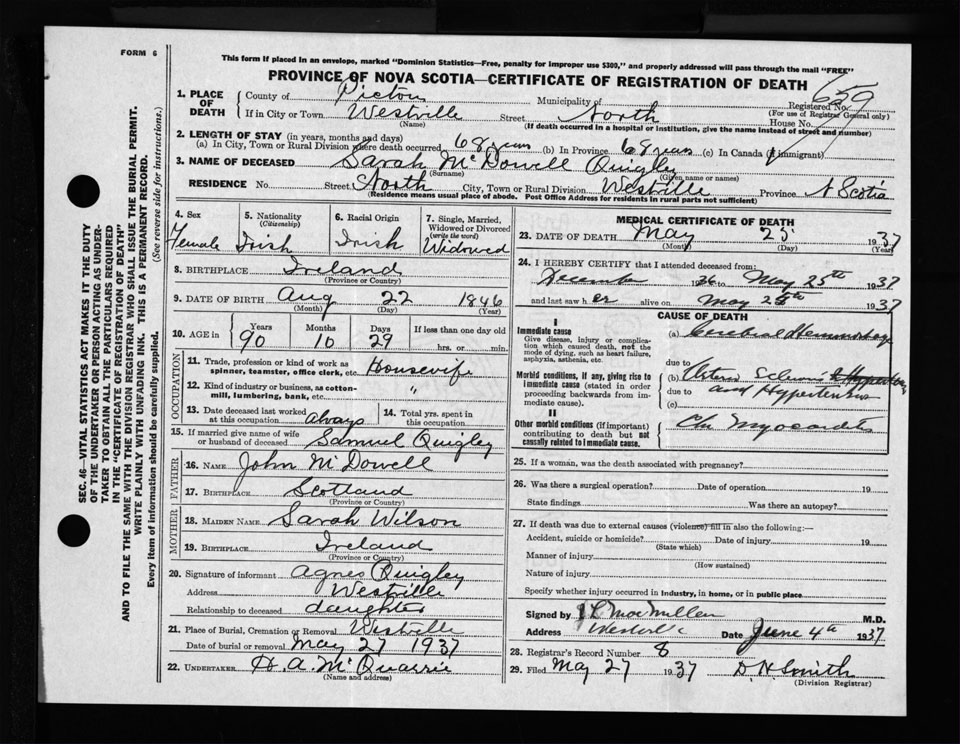 FORM 6
This form if placed in an envelope, marked "Dominion Statistics—Free, penalty for improper use $300," and properly addressed will pass through the mail "FREE"
PROVINCE OF NOVA SCOTIA—CERTIFICATE OF REGISTRATION OF DEATH
659
1. PLACE OF DEATH { County of Pictou Municipality of Registered No.
(For use of Registrar General only)
If in City or Town Westville Street North House No.
(Name) (If death occurred in a hospital or institution, give the name instead of street and number)
2. LENGTH OF STAY (in years, months and days)
(a) In City, Town or Rural Division where death occurred 68 years (b) In Province 68 years (c) In Canada (if immigrant)
3. NAME OF DECEASED Sarah McDowell Quigley
(Surname) (Given name or names)
RESIDENCE No. Street North City, Town or Rural Division Westville Province N Scotia
(Residence means usual place of abode. Post Office Address for residents in rural parts not sufficient)
4. Sex
Female
5. Nationality
(Citizenship)
Irish
6. Racial Origin
Irish
7. Single, Married, Widowed or Divorced
(write the word)
Widowed
8. BIRTHPLACE Ireland
(Province or Country)
9. DATE OF BIRTH Aug 22 1846
(Month) (Day) (Year)
10. AGE in Years Months Days If less than one day old
90 10 29 hrs. or min.
OCCUPATION
11. Trade, profession or kind of work as spinner, teamster, office clerk, etc. Housewife
12. Kind of industry or business, as cotton-mill, lumbering, bank, etc. "
13. Date deceased last worked at this occupation always
14. Total yrs. spent in this occupation
15. If married give name of wife or husband of deceased Samuel Quigley
FATHER
16. NAME John McDowell
17. BIRTHPLACE Scotland
(Province or Country)
MOTHER
18. MAIDEN NAME Sarah Wilson
19. BIRTHPLACE Ireland
(Province or Country)
20. Signature of informant Agnes Quigley
Address Westville
Relationship to deceased daughter
21. Place of Burial, Cremation or Removal Westville
Date of burial or removal May 27 1937
22. UNDERTAKER H. A. McQuarrie
(Name and address)
MEDICAL CERTIFICATE OF DEATH
23. DATE OF DEATH May 25 1937
(Month) (Day) (Year)
24. I HEREBY CERTIFY that I attended deceased from:
December 1936 to May 25th 1937
and last saw her alive on May 25th 1937
CAUSE OF DEATH
I
Immediate cause
Give disease, injury or complication which caused death, not the mode of dying, such as heart failure, asphyxia, asthenia, etc.
(a) Cerebral Hemorrhage
due to
Morbid conditions, if any, giving rise to immediate cause (stated in order proceeding backwards from immediate cause).
(b) Arterio
due to and Hypertension
(c)
II
Other morbid conditions (if important) contributing to death but not causally related to immediate cause.
Chr Myocarditis
25. If a woman, was the death associated with pregnancy?
26. Was there a surgical operation? Date of operation 19
State findings Was there an autopsy?
27. If death was due to external causes (violence) fill in also the following:—
Accident, suicide or homicide? Date of injury 19
(State which)
Manner of injury
(How sustained)
Nature of injury
Specify whether injury occurred in industry, in home, or in public place
Signed by MacMillan M.D.
Address Westville Date June 4th 1937
28. Registrar's Record Number 8
29. Filed May 27 1937 D. H. Smith
(Division Registrar)
SEC. 46—VITAL STATISTICS ACT MAKES IT THE DUTY
OF THE UNDERTAKER OR PERSON ACTING AS UNDER-
TAKER TO OBTAIN ALL THE PARTICULARS REQUIRED
IN THE "CERTIFICATE OF REGISTRATION OF DEATH"
AND TO FILE THE SAME WITH THE DIVISION REGISTRAR WHO SHALL ISSUE THE BURIAL PERMIT.
WRITE PLAINLY WITH UNFADING INK. THIS IS A PERMANENT RECORD.
Every item of information should be carefully supplied. (See reverse side for instructions.)